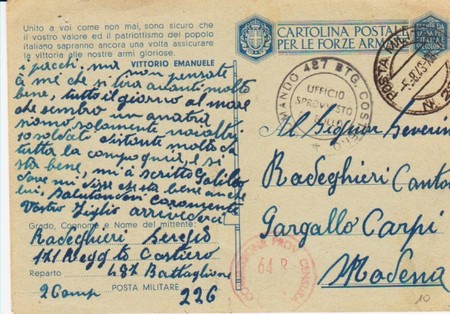 Unito a voi come non mai, sono sicuro che
il vostro valore ed il patriottismo del popolo
italiano sapranno ancora una volta assicurare
la vittoria alle nostre armi gloriose.
VITTORIO EMANUELE
i pochi, ma non pensate
a me che si tira avanti molto
bene, tutto il giorno al mare
che sembro un
siamo solamente noialtri
10 soldati distante molto da
tutta la compagnia, e si
sta bene, mi à scritto Galileo
dove mi disse che sta bene anche
lui, Salutandovi Caramente
Vostro figlio arrivederci
Grado, Cognome e Nome del mittente:
Radeghieri Sergio
121 Regg to Costiero
Reparto 487 Battaglione
2 Comp POSTA MILITARE 226
CARTOLINA POSTALE
PER LE FORZE ARMATE
COMANDO 487 BTG. COSTIERO
UFFICIO
SPROVVISTO
BOLLO
POSTA MILITARE
Al Signor Severino
Radeghieri
Gargallo Carpi
Modena
64 R
CENSURA
10